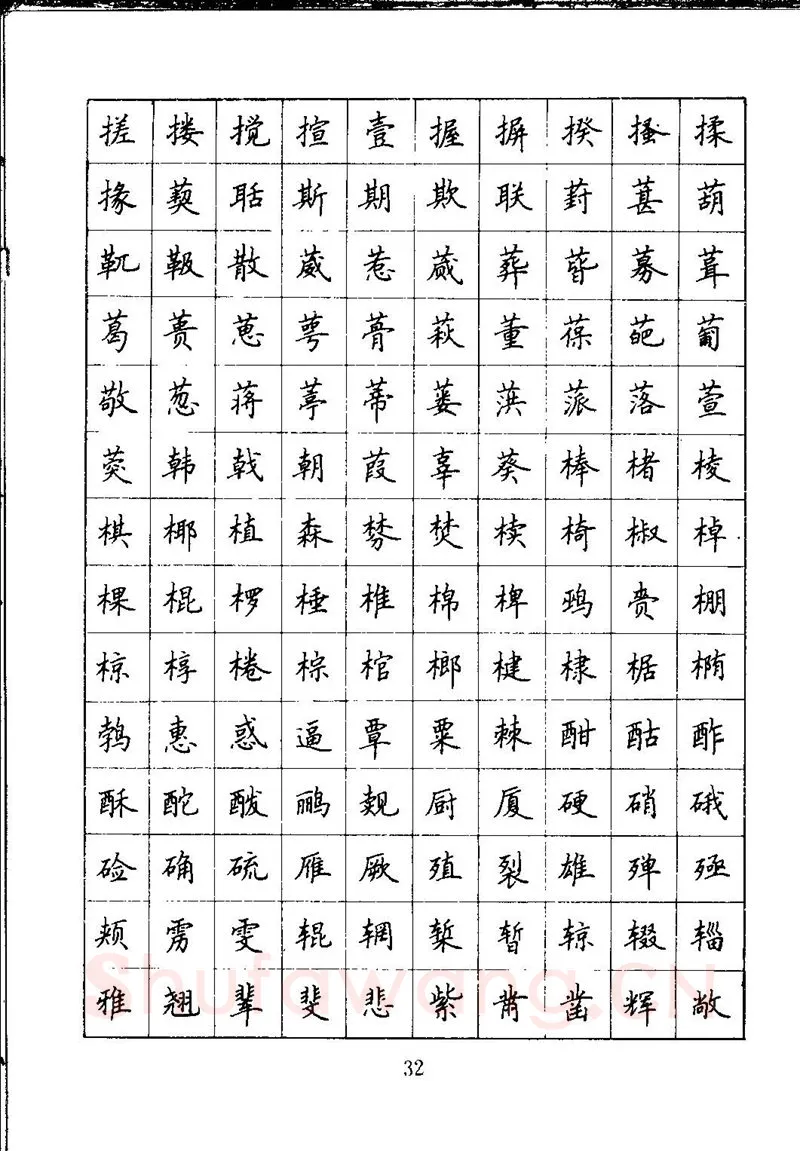 搓 搂 搅 揎 壹 握 摒 揆 搔 揉
掾 葜 聒 斯 期 欺 联 葑 葚 葫
靰 靸 散 葳 惹 蒇 葬 募 葺
葛 蒉 葸 萼 蓇 萩 董 葆 葩 葡
敬 葱 蒋 葶 蒂 蒌 蓱 蒎 落 萱
韩 戟 朝 葭 辜 葵 棒 楮 棱
棋 椰 植 森 棼 焚 椟 椅 椒 棹
棵 棍 椤 棰 椎 棉 椑 鹀 赍 棚
椋 椁 棬 棕 棺 榔 楗 棣 椐 椭
鹁 惠 惑 逼 覃 粟 棘 酣 酤 酢
酥 酡 酦 鹂 觌 厨 厦 硬 硝 硪
硷 确 硫 雁 厥 殖 裂 雄 殚 殛
颊 雳 雯 辊 辋 椠 暂 辌 辍 辎
雅 翘 辈 斐 悲 紫 凿 辉 敞
Shufawang.CN
32